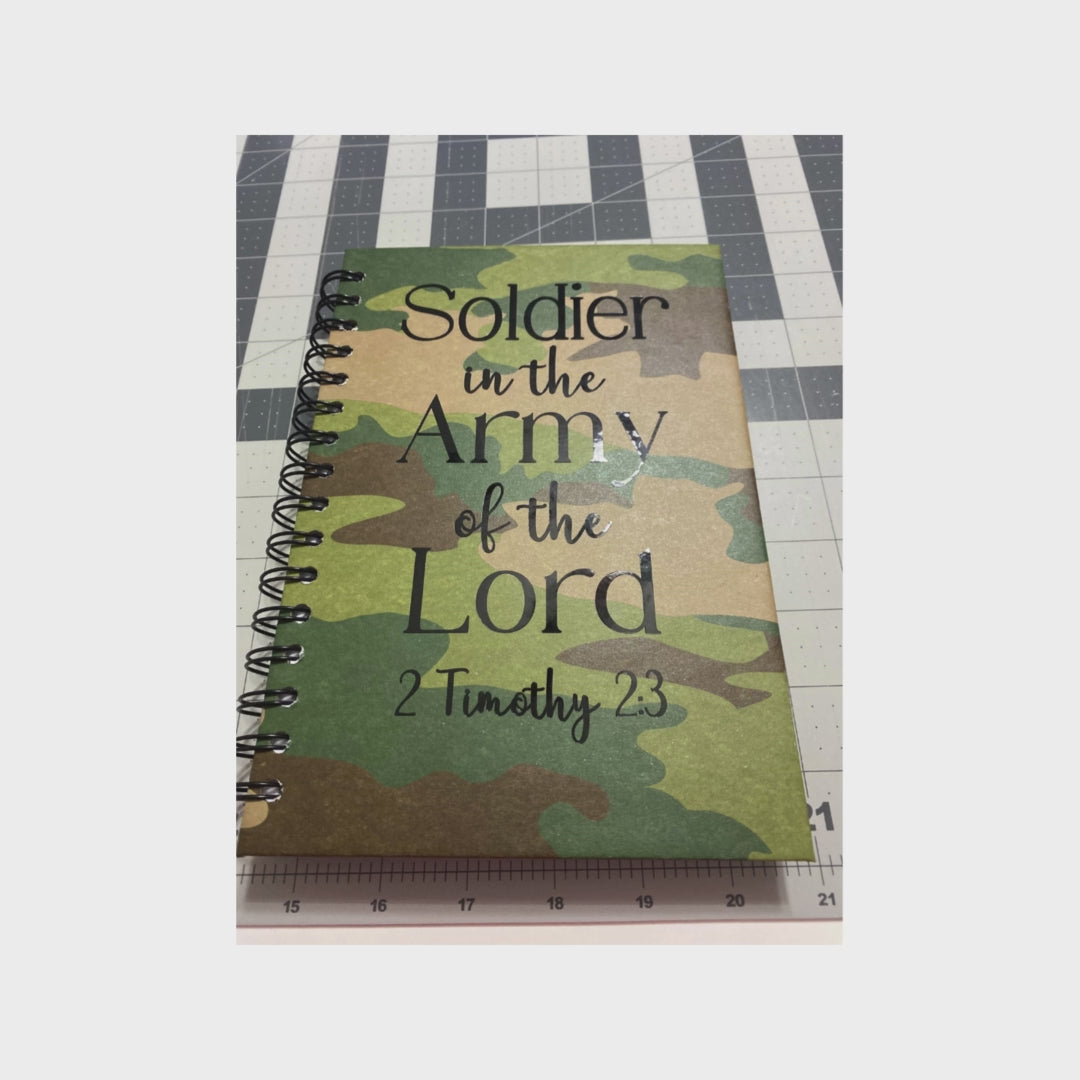 Soldier
in the
Army
of the
Lord
2 Timothy 2:3
21
15 16 17 18 19 20 21